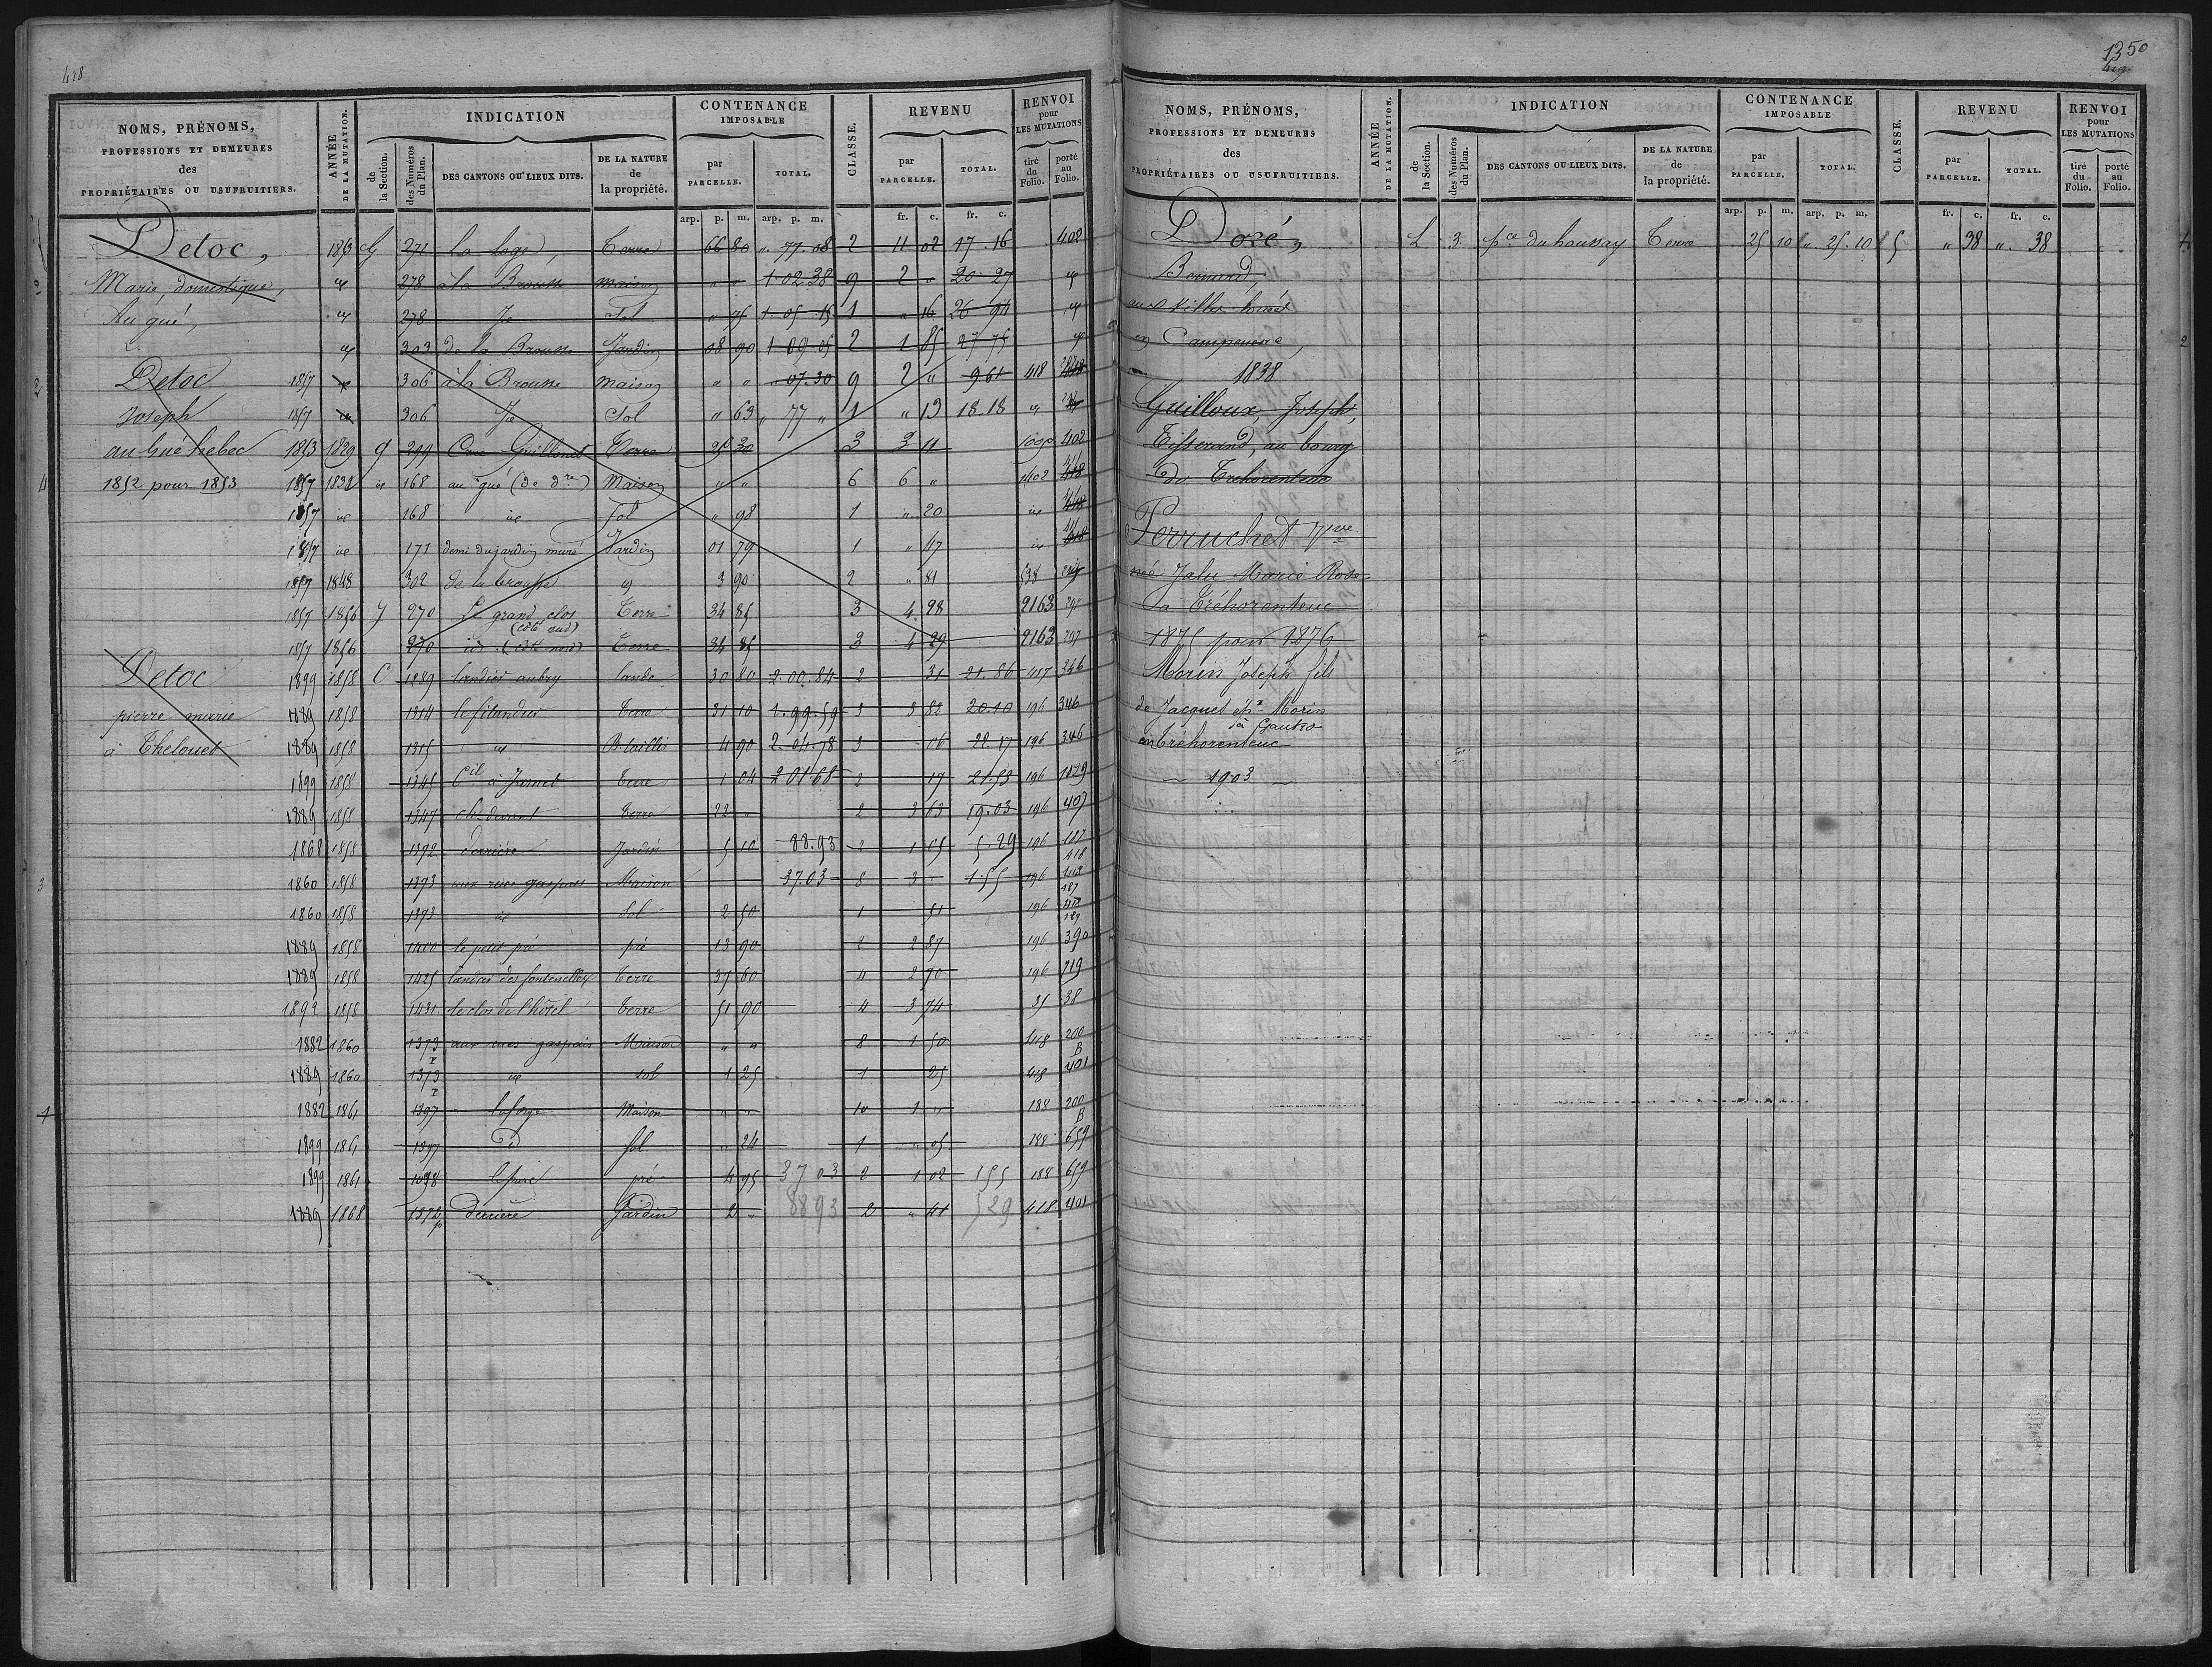 418
NOMS, PRÉNOMS, PROFESSIONS ET DEMEURES des PROPRIÉTAIRES OU USUFRUITIERS.
ANNÉE DE LA MUTATION.
INDICATION
de la Section.
des Numéros du Plan.
DES CANTONS OU LIEUX DITS.
DE LA NATURE de la propriété.
CONTENANCE IMPOSABLE
par PARCELLE.
TOTAL.
CLASSE.
REVENU
par PARCELLE.
TOTAL.
RENVOI pour LES MUTATIONS
tiré du Folio.
porté au Folio.
arp. p. m. arp. p. m. fr. c. fr. c.
Detoc, G 271 La Loge, Terre 66 80 " 77.08 2 11 02 17.16 402
Marie, domestique, 278 à la Brousse maison " " 1.02.38 9 2 " 20 27
Au gué, 278 Sol " 75 1.05.15 1 " 16 26 94
303 de la Brousse Jardin 08 90 1 09 05 2 1 85 27 75
Detoc 1857 306 à la Brousse maison " " " 07.30 9 2 " 9.61 418
Joseph 1857 306 Sol " 63 " 77 " 1 " 13 18.18
au Gué hebec 1853 1829 g 299 Terre 25 30 3 3 11 402
1852 pour 1853 1857 168 au gué Maison " " 6 6 " 402
1857 168 Sol " 98 1 " 20
1857 171 demi du jardin muré Jardin 01 79 1 " 47
1857 1848 302 de la brousse 3 90 2 " 81 538
1857 1856 g 270 Le grand clos (côté sud) Terre 34 85 3 4 28 2163
1857 1856 270 id. (côté nord) Terre 34 85 3 4 29 2163
Detoc 1899 1858 C 1289 landier aubry lande 30 80 2.00.84 2 31 21.86 417 346
pierre marie 1889 1858 1314 Terre 31 10 1.99.59 3 3 82 20.10 196 346
à Thelouet 1889 1858 1315 B. taillis 4 90 2.04.78 3 06 22.17 196 346
1899 1858 1345 Cil à Jamet Terre 1 04 2 01 68 2 17 21.53 196 1029
1889 1858 1347 ch. devant Terre 22 " 2 3 63 19.03 196 407
1868 1858 1372 derrière Jardin 5 10 88.93 2 1 05 5.29 196 418
1860 1858 1373 aux rues gaspais Maison 37.03 8 3 1.55 196 187
1860 1858 1373 Sol 2 50 1 51 196
1889 1858 1400 le petit pré pré 13 90 2 2 87 196 390
1889 1858 1425 landier des fontenelles Terre 37 60 4 2 70 196 719
1892 1858 1431 le clos de l'hôtel Terre 51 90 4 3 74 35 38
1882 1860 1373 aux rues gaspais Maison " " 8 1 50 418 200 B
1889 1860 1373 sol 1 25 1 25 418 401
1882 1861 1397 la forge Maison " " 10 1 " 188 200 B
1899 1861 1397 Sol. " 24 1 " 05 188 659
1899 1861 1398 pré 4 95 37 03 2 1 02 155 188 659
1889 1868 1372 p derrière Jardin 2 " 88 93 2 " 41 529 418 401
1350
419
NOMS, PRÉNOMS, PROFESSIONS ET DEMEURES des PROPRIÉTAIRES OU USUFRUITIERS.
ANNÉE DE LA MUTATION.
INDICATION
de la Section.
des Numéros du Plan.
DES CANTONS OU LIEUX DITS.
DE LA NATURE de la propriété.
CONTENANCE IMPOSABLE
par PARCELLE.
TOTAL.
CLASSE.
REVENU
par PARCELLE.
TOTAL.
RENVOI pour LES MUTATIONS
tiré du Folio.
porté au Folio.
arp. p. m. arp. p. m. fr. c. fr. c.
Doré, L 3. pce du haussay Terre 25 10 " 25.10 5 " 38 " 38
Bernard,
aux Villes
en Campeneac,
1838
Guilloux, Joseph,
Tisserand, au bourg
de Trehorenteuc
Perruchet Vve
née Jalu Marie Rose
à Tréhorenteuc
1875 pour 1876
Morin Joseph fils
de Jacques ép. Morin
à Gautro
en Tréhorenteuc
1903